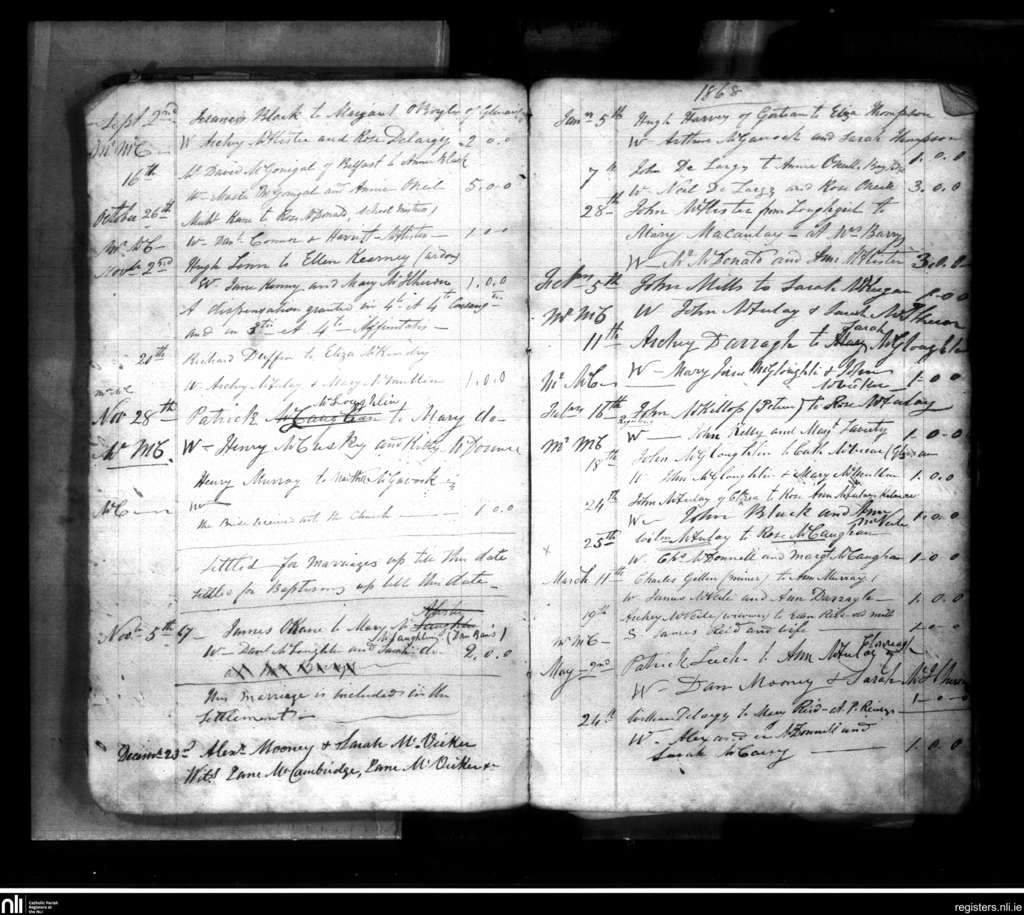 Sept 2nd Francis Black to Margaret O'Boyle of Glenariff
Mr McC W Archy McAlister and Rose Delargy 2 0.0
16th Mr David McGonigal of Belfast to Annie Black
W Master McGonigal and Annie O'Neil 5.0.0
October 26th Michl Kane to Rose McDonald, School Mistress
Mr McC W Danl Connor & Harriet McAlister 1.0.0
Novbr 2nd Hugh Linn to Ellen Kearney (ardoy)
W Jane Kenny and Mary McIlheron 1.0.0
A Dispensation granted in 4t. et 4t Consangtis
and in 3tio et 4to Affinitatis
20th Richard Duffin to Eliza McKendry
Mr McC W Archy McAulay & Mary McMullin 1.0.0
McLoughlin
Nov 28th Patrick to Mary do
Mr McC. W Henry McCusky and Kitty
Henry Murray to McGavock
McC W
the Bride received into the Church 1 0.0
Settled for marriages up till this date
Settled for Baptisms up till this date
Novr 5th 67 James O'Kane to Mary McLaughlin (Dan Ban's)
W Danl McLaughlin and Sarah do. 2.0.0
This marriage is included in the
Settlement
Decem 23rd Alexr Mooney & Sarah McVicker
Wits Jane McCambridge, Jane McVicker
1868
Jany 5th Hugh Harvey of to Eliza Thompson
W Arthur McGavock and Sarah Thompson 1.0.0
7th John De Largy to Annie O'Neill,
W Neil De Largy and Rose O'Neill 3.0.0
28th John McAlister from Loughgiel to
Mary Macaulay at Wm Barry
W Mr McDonald and Ann McAlister 3.0.0
Feby 5th John Mills to Sarah McKeegan 1.0.0
Mr McC W John McAulay & Sarah McIlheron
Sarah
11th Archy Darragh to McGloughlin
Mr McC W Mary Jane McGloughlin & John
McVicker 1.0.0
16th John McKillop (Peter) to Rose McAulay
Mr McC W John Kelly and Margt Laverty 1.0.0
18th John McGloughlin to Cath
W John McGloughlin & Mary McMullin 1.0.0
24th John McAulay of to Rose Ann McAulay
W John Black and Amy
McNeile 1.0.0
x 25th McAulay to Rose McCaughan
W Chs McDonnell and Margt McCaughan 1.0.0
March 11th Charles Gillen (miner) to Ann Murray
W James McNeill and Ann Darragh 1.0.0
19th Archy McNeile to Reid
Mr McC S James Reid and wife 1.0.0
May 2nd Patrick Leech to Ann McAulay
W Dan Mooney & Sarah McIlheron 1.0.0
24th William Delargy to Mary Reid
W Alexander McDonnell and
Sarah McCarry 1.0.0
nli
Catholic Parish
Registers at
the NLI
registers.nli.ie